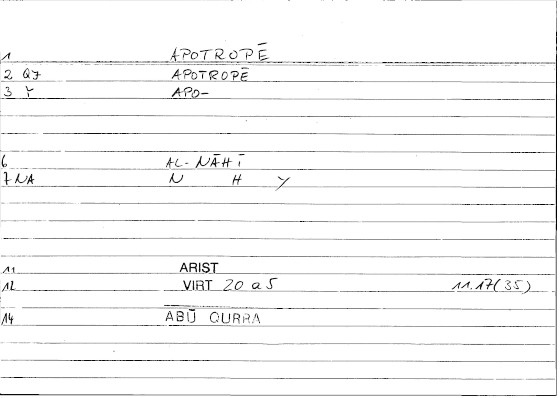 1 APOTROPĒ
2 QJ APOTROPĒ
3 Y APO-
6 AL-NĀHĪ
7 NA N H Y
11 ARIST
12 VIRT 20 a 5 11.17(35)
14 ABŪ QURRA